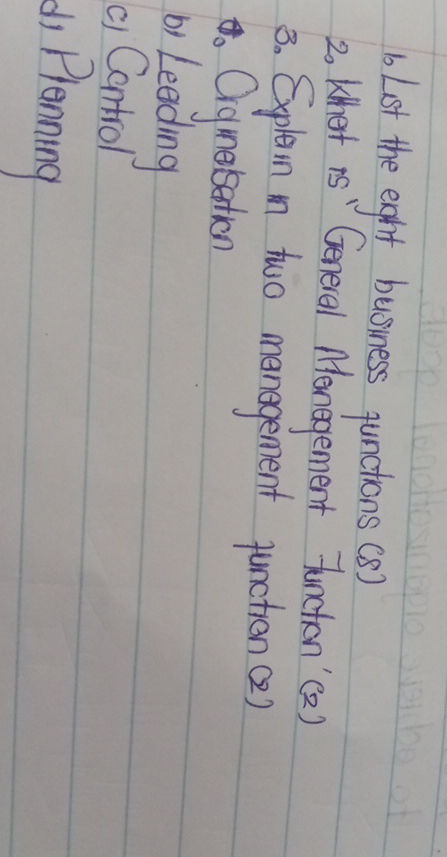 1. List the eight business functions (8)
2. What is "General Management Function' (2)
3. Explain in two management function (2)
a. Orgineisation
b) Leading
c) Control
d) Planning